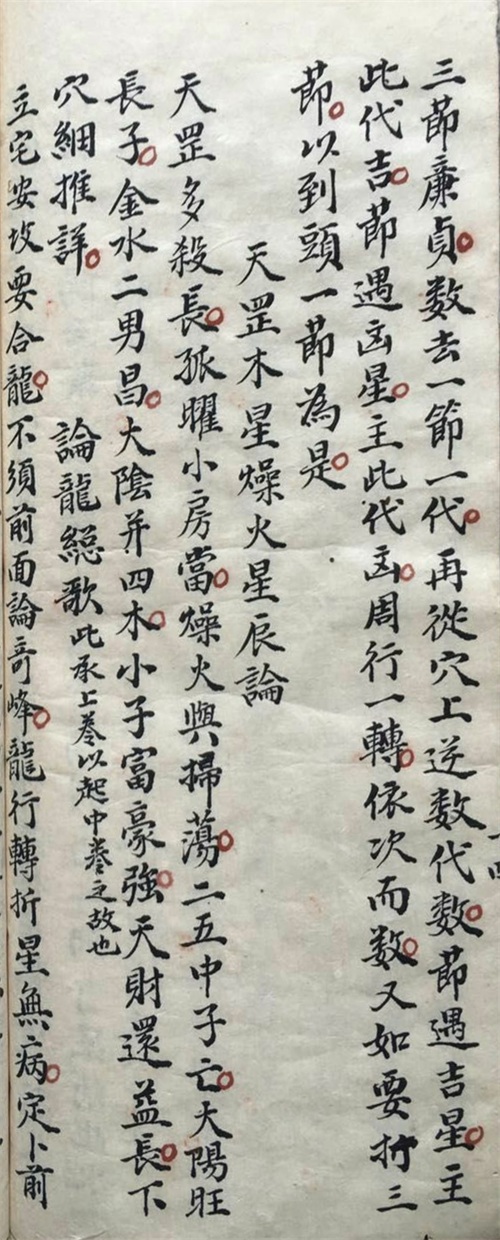 三節廉貞。数去一節一代。再從穴上逆数代数。節遇吉星。主
此代吉。節遇凶星。主此代凶。周行一轉。依次而数。又如要折三
節。以到頭一節為是。
天罡木星燥火星辰論
天罡多殺長。孤曜小房當。燥火與掃蕩。二五中子亡。太陽旺
長子。金水二男昌。太陰并四木。小子富豪強。天財還益長。下
穴細推詳。
論龍總歌此承上卷以起中卷之故也
立宅安坟要合龍。不須前面論奇峰。龍行轉折星無病。定卜前